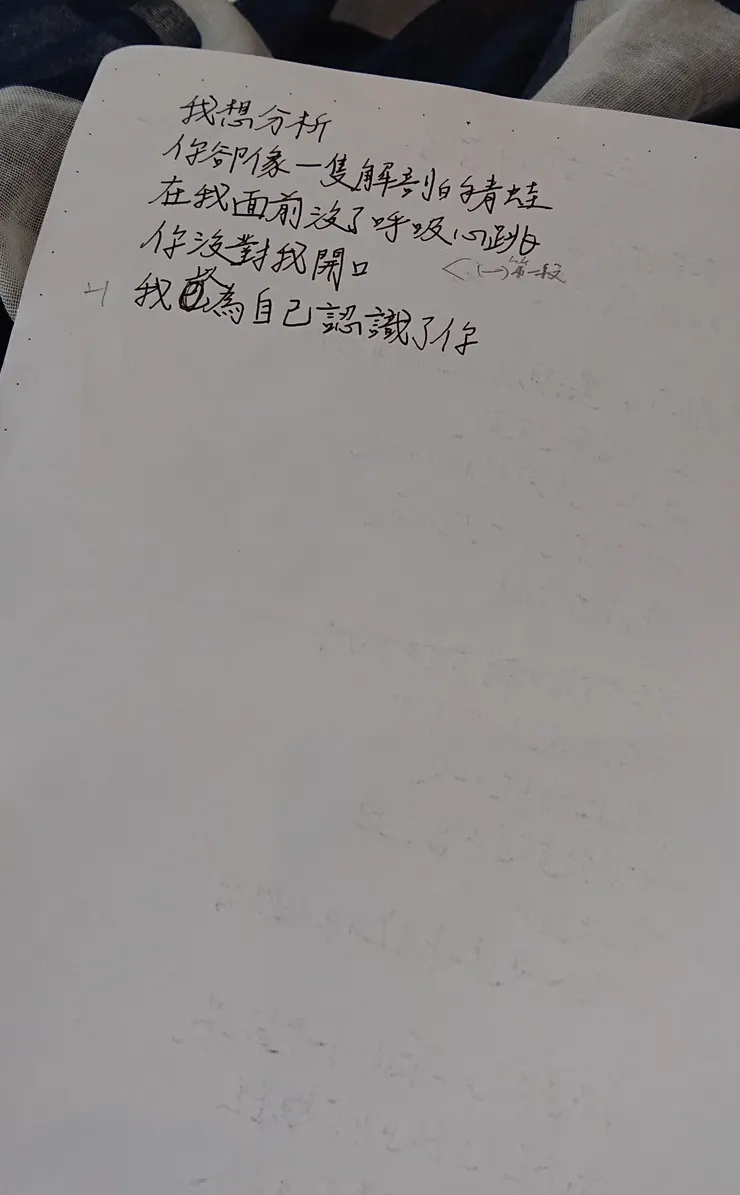 我想分析
你卻像一隻解剖青蛙
在我面前沒了呼吸心跳
你沒對我開口
<(一)第一段
我為自己認識了你